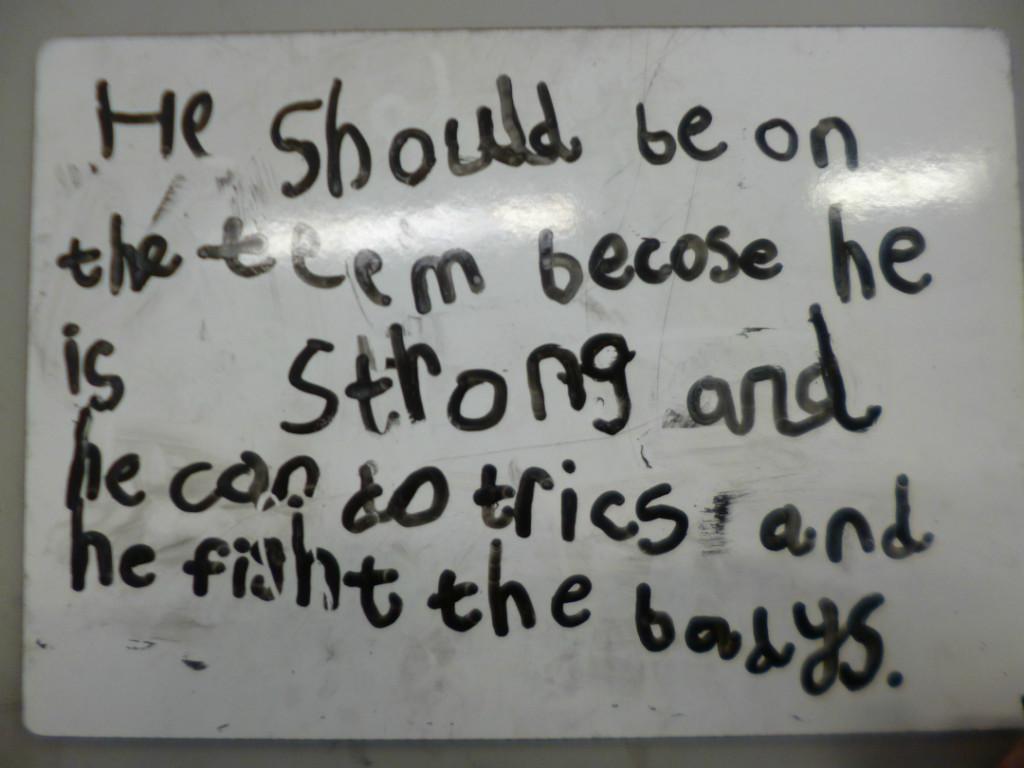 He should be on
the teem becose he
is strong and
he can do trics and
he fight the badys.